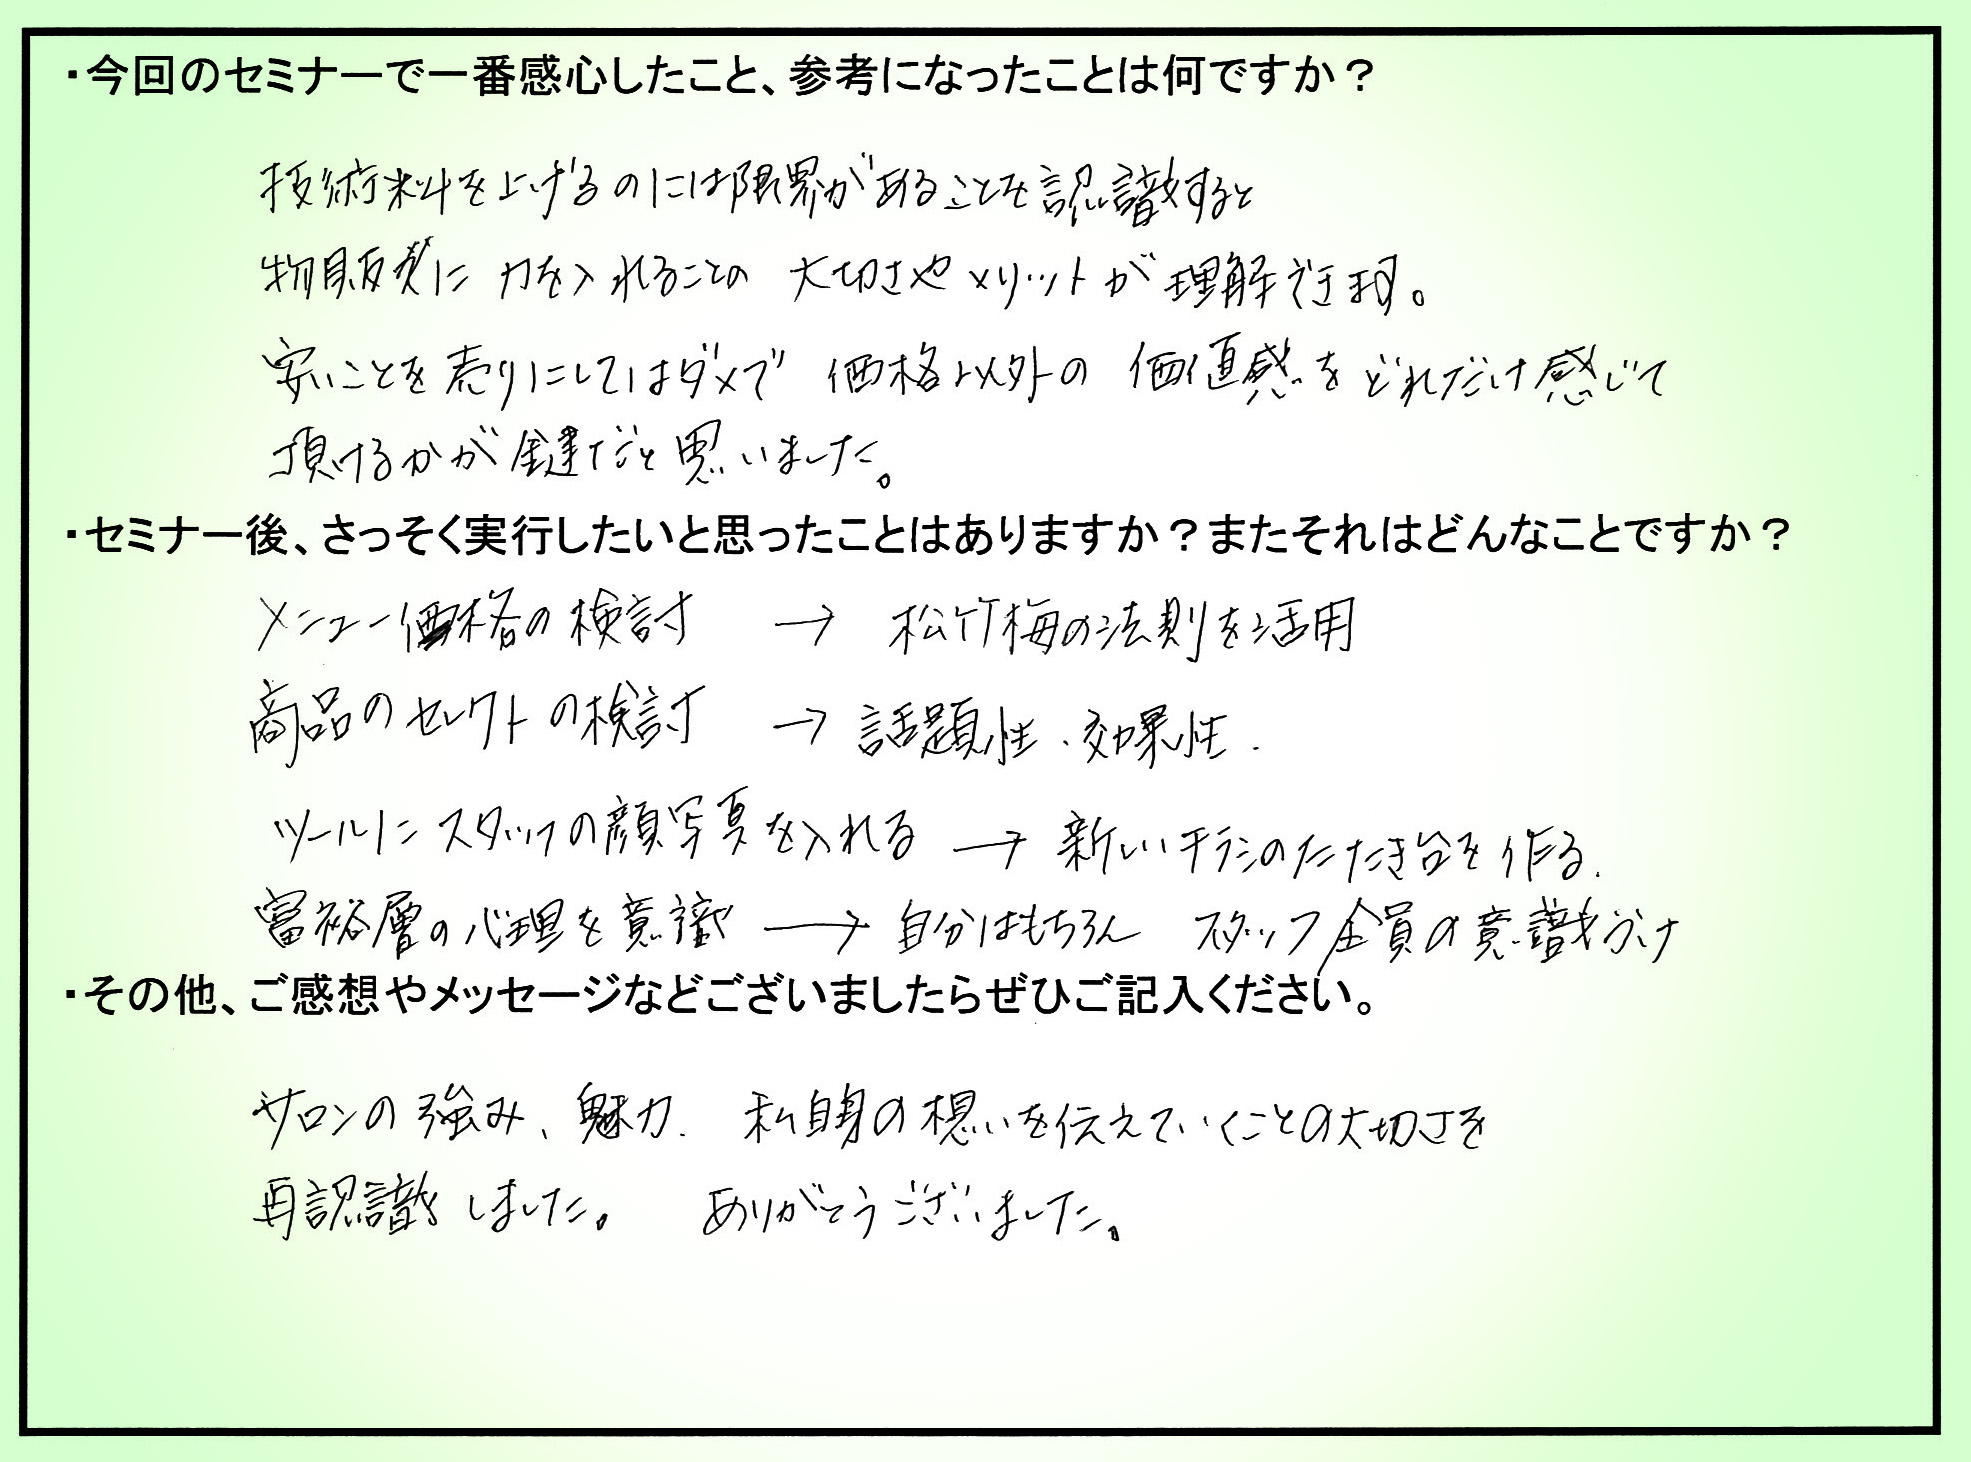 ・今回のセミナーで一番感心したこと、参考になったことは何ですか？
技術料を上げるのには限界があることを認識すると
物販に力を入れることの 大切さや メリットが 理解できます。
安いことを売りにしてはダメで 価格以外の 価値感を どれだけ感じて
頂けるかが鍵だと思いました。
・セミナー後、さっそく実行したいと思ったことはありますか？またそれはどんなことですか？
メニュー価格の検討 → 松竹梅の法則を活用
商品のセレクトの検討 → 話題性、効果性.
ツールに スタッフの顔写真を入れる → 新しいチラシのたたき台を作る.
富裕層の心理を意識 → 自分はもちろん スタッフ全員の意識づけ
・その他、ご感想やメッセージなどございましたらぜひご記入ください。
サロンの強み、魅力. 私自身の想いを伝えていくことの大切さを
再認識しました。 ありがとうございました。